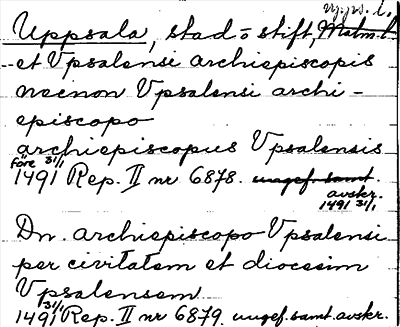 Uppsala, stad o stift, Malm. l.
-- et Vpsalensi archiepiscopis
necnon Vpsalensi archi-
episcopo
archiepiscopus Vpsalensis
före 31/1
1491 Rep. II nr 6878. ungef. samt.
avskr.
1491 31/1
Dn. archiepiscopo Vpsalensi
per civitatem et diocesim
Vpsalensem
31/1
1491 Rep. II nr 6879. ungef. samt. avskr.